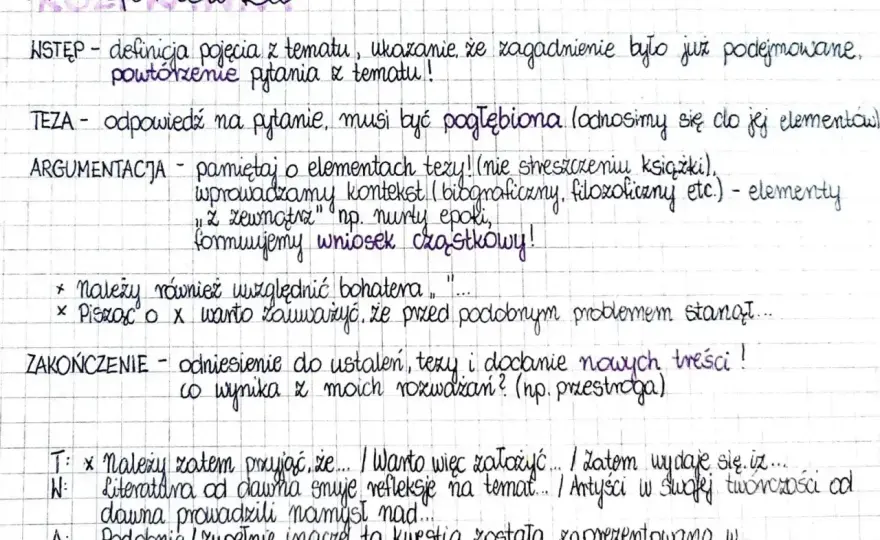 WSTĘP - definicja pojęcia z tematu, ukazanie, że zagadnienie było już podejmowane,
powtórzenie pytania z tematu!
TEZA - odpowiedź na pytanie, musi być pogłębiona (odnosimy się do jej elementów)
ARGUMENTACJA - pamiętaj o elementach tezy! (nie streszczeniu książki),
wprowadzamy kontekst (biograficzny, filozoficzny etc.) - elementy
„z zewnątrz" np. nurty epoki,
formułujemy wniosek cząstkowy!
× Należy również uwzględnić bohatera „ "...
× Pisząc o x warto zauważyć, że przed podobnym problemem stanął...
ZAKOŃCZENIE - odniesienie do ustaleń, tezy i dodanie nowych treści!
co wynika z moich rozważań? (np. przestroga)
T: × Należy zatem przyjąć, że... / Warto więc założyć... / Zatem wydaje się, iż...
W: Literatura od dawna snuje refleksje na temat... / Artyści w swojej twórczości od
dawna prowadzili namysł nad...
A: Podobnie / zupełnie inaczej ta kwestia została zaprezentowana w